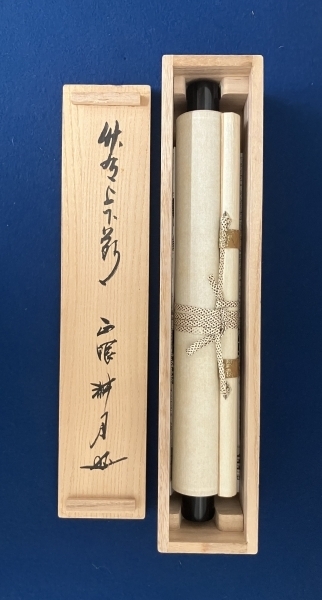 竹有上下節
正眼 耕月